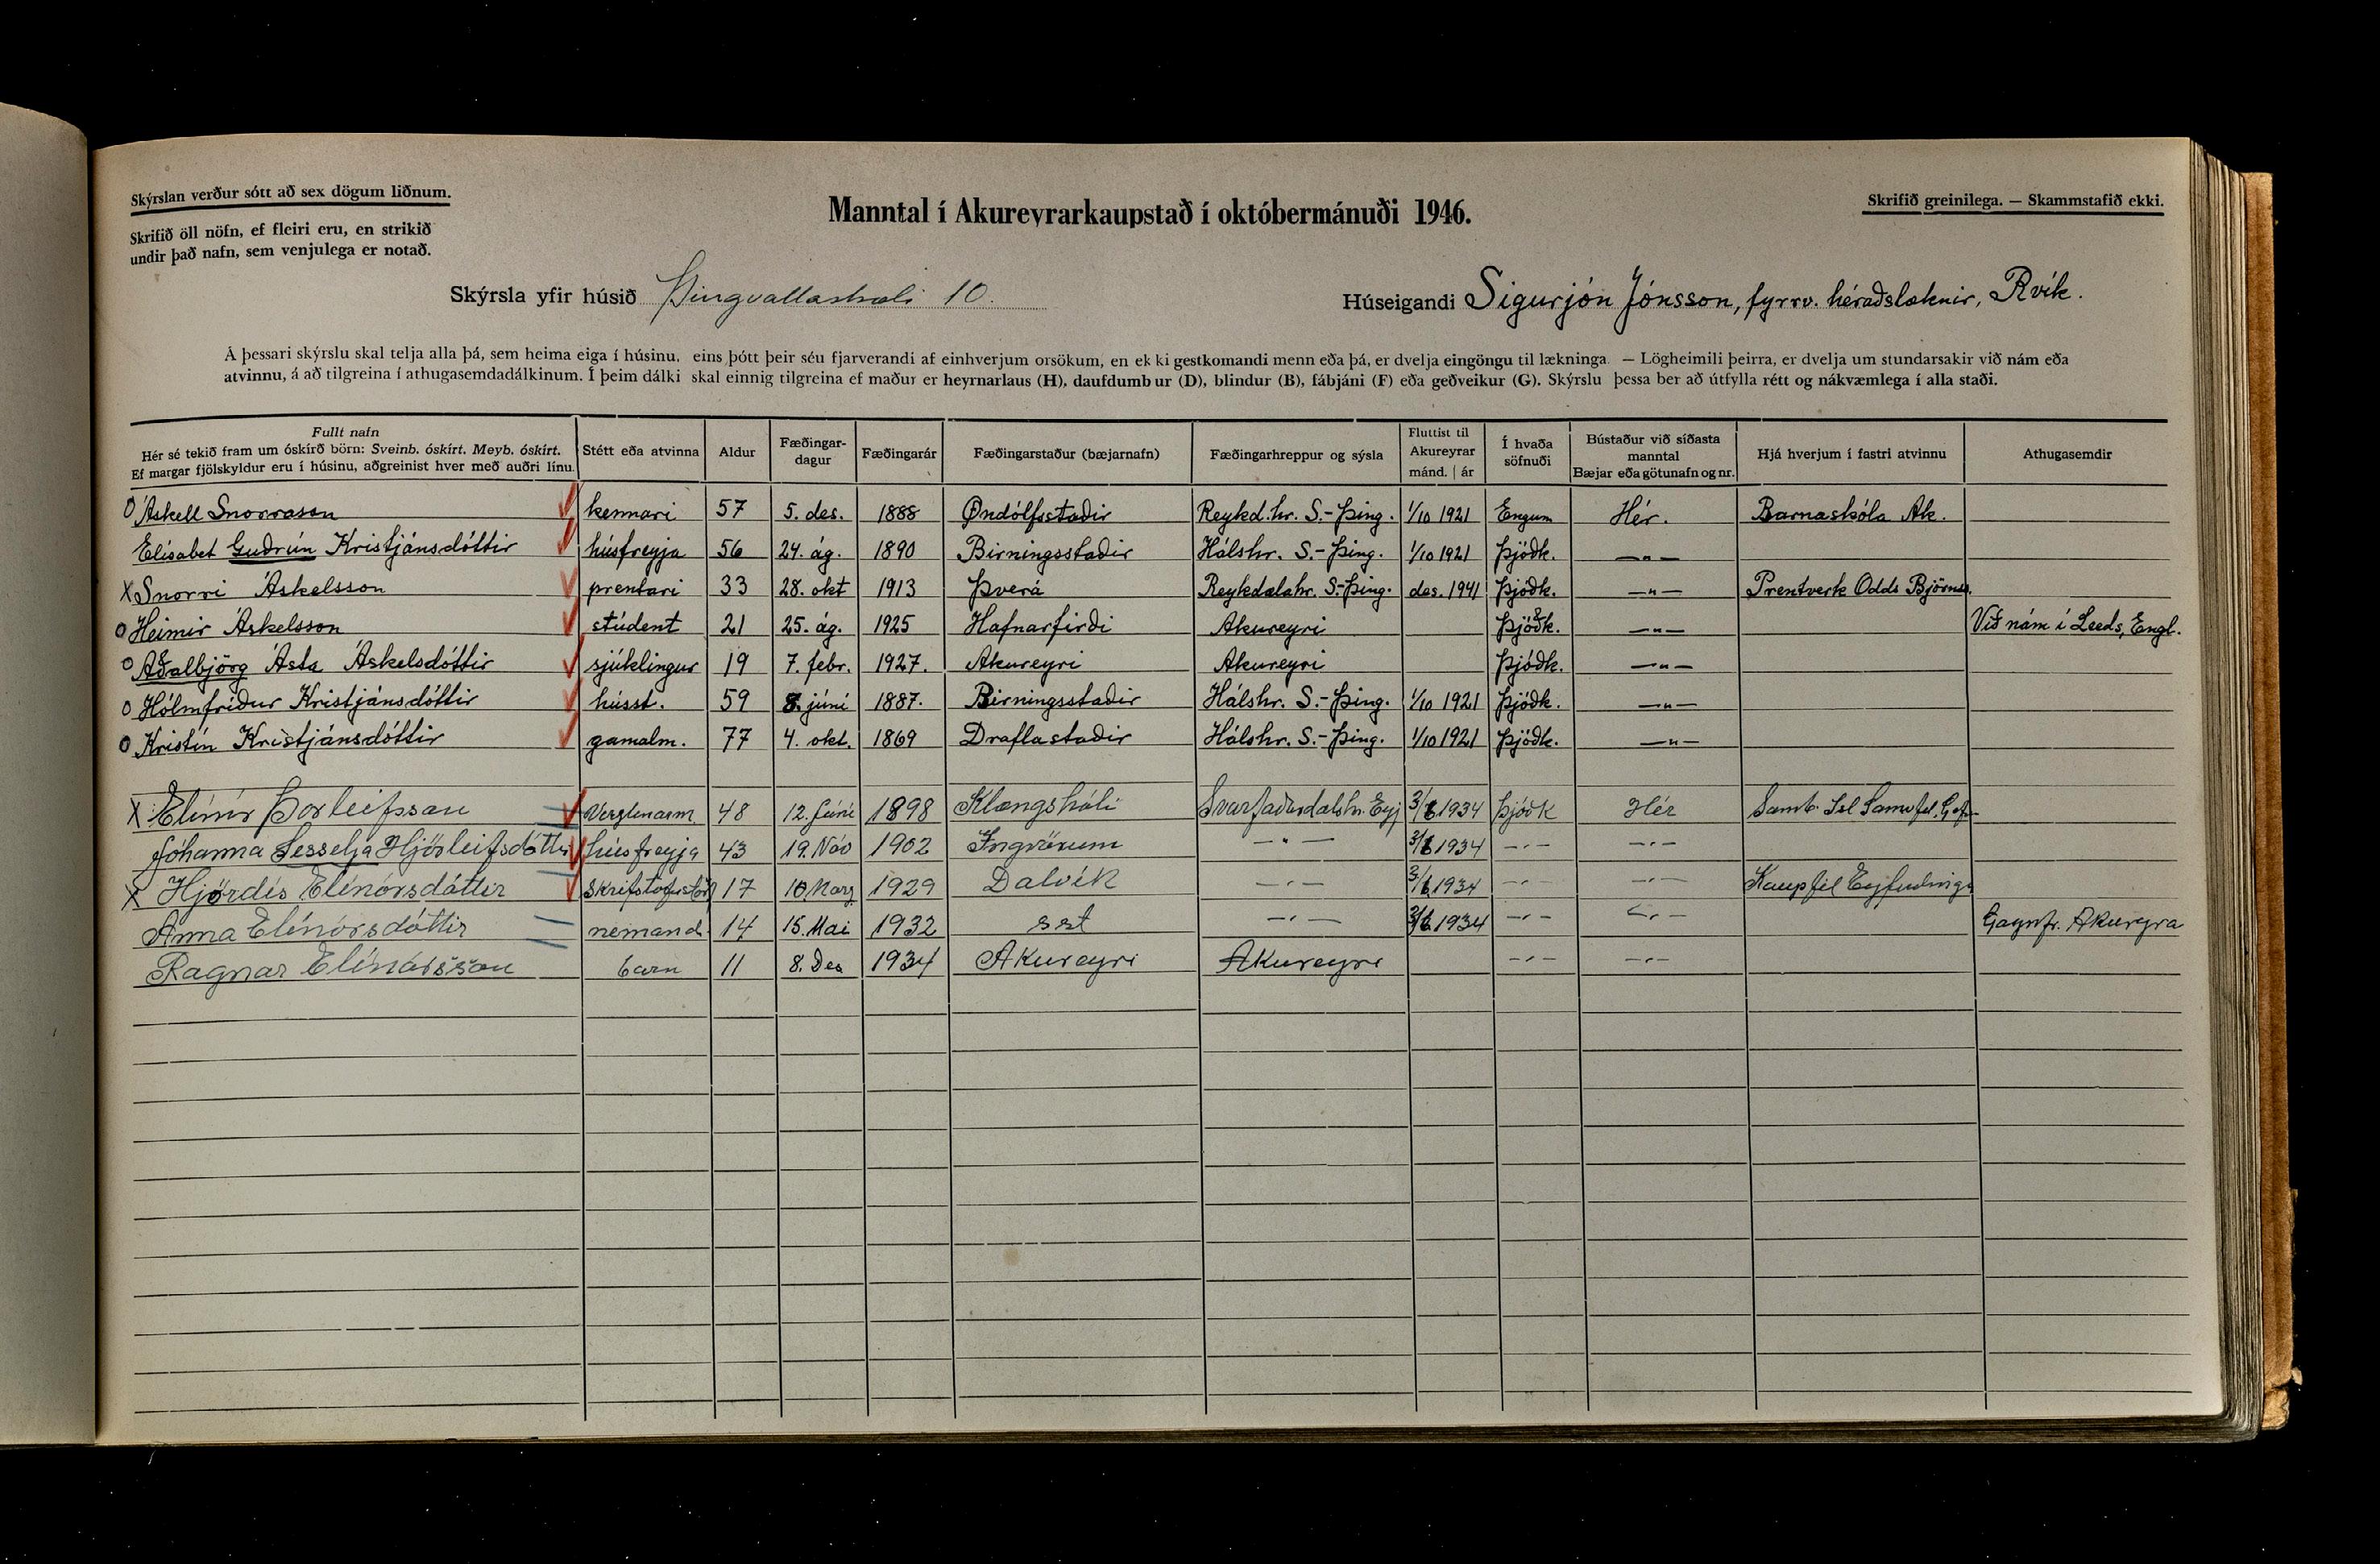 Skýrslan verður sótt að sex dögum liðnum.
Manntal í Akureyrarkaupstað í októbermánuði 1946.
Skrifið greinilega. — Skammstafið ekki.
Skrifið öll nöfn, ef fleiri eru, en strikið
undir það nafn, sem venjulega er notað.
Skýrsla yfir húsið Þingvallastræti 10.
Húseigandi Sigurjón Jónsson, fyrrv. héraðslæknir, Rvík.
Á þessari skýrslu skal telja alla þá, sem heima eiga í húsinu, eins þótt þeir séu fjarverandi af einhverjum orsökum, en ek ki gestkomandi menn eða þá, er dvelja eingöngu til lækninga. — Lögheimili þeirra, er dvelja um stundarsakir við nám eða
atvinnu, á að tilgreina í athugasemdadálkinum. Í þeim dálki skal einnig tilgreina ef maður er heyrnarlaus (H), daufdumb ur (D), blindur (B), fábjáni (F) eða geðveikur (G). Skýrslu þessa ber að útfylla rétt og nákvæmlega í alla staði.
Fullt nafn
Hér sé tekið fram um óskírð börn: Sveinb. óskírt. Meyb. óskírt.
Ef margar fjölskyldur eru í húsinu, aðgreinist hver með auðri línu.
Stétt eða atvinna
Aldur
Fæðingar-
dagur
Fæðingarár
Fæðingarstaður (bæjarnafn)
Fæðingarhreppur og sýsla
Fluttist til
Akureyrar
mánd. | ár
Í hvaða
söfnuði
Bústaður við síðasta
manntal
Bæjar eða götunafn og nr.
Hjá hverjum í fastri atvinnu
Athugasemdir
O Áskell Snorrason kennari 57 5. des. 1888 Öndólfsstaðir Reykd.hr. S.-Þing. 1/10 1921 Engum Hér. Barnaskóla Ak.
Elísabet Guðrún Kristjánsdóttir húsfreyja 56 24. ág. 1890 Birningsstaðir Hálshr. S.-Þing. 1/10 1921 Þjóðk. —"—
X Snorri Áskelsson prentari 33 28. okt 1913 Þverá Reykdælahr. S.-Þing. des. 1941 Þjóðk. —"— Prentverk Odds Björnss.
O Heimir Áskelsson stúdent 21 25. ág. 1925 Hafnarfirði Akureyri Þjóðk. —"— Við nám í Leeds, Engl.
O Aðalbjörg Ásta Áskelsdóttir sjúklingur 19 7. febr. 1927. Akureyri Akureyri Þjóðk. —"—
O Hólmfríður Kristjánsdóttir hússt. 59 8. júní 1887. Birningsstaðir Hálshr. S.-Þing. 1/10 1921 Þjóðk. —"—
O Kristín Kristjánsdóttir gamalm. 77 4. okt. 1869 Draflastaðir Hálshr. S.-Þing. 1/10 1921 Þjóðk. —"—
X Elínór Þorleifsson 48 12. Júní 1898 Klængshóli Svarfaðardalshr. Eyj 3/6 1934 Þjóðk Hér Samb. Ísl Samvfel.
Jóhanna Sesselja Hjörleifsdóttir húsfreyja 43 19. Nóv 1902 Ingvörum —"— 3/6 1934 —"— —"—
X Hjördís Elínórsdóttir 17 10 Marz 1929 Dalvík —"— 3/6 1934 —"— —"—
Anna Elínórsdóttir nemand. 14 15. Mai 1932 sst —"— 3/6 1934 —"— —"— Gagnfr. Akureyra
Ragnar Elínórsson barn 11 8. Des 1934 Akureyri Akureyri —"— —"—